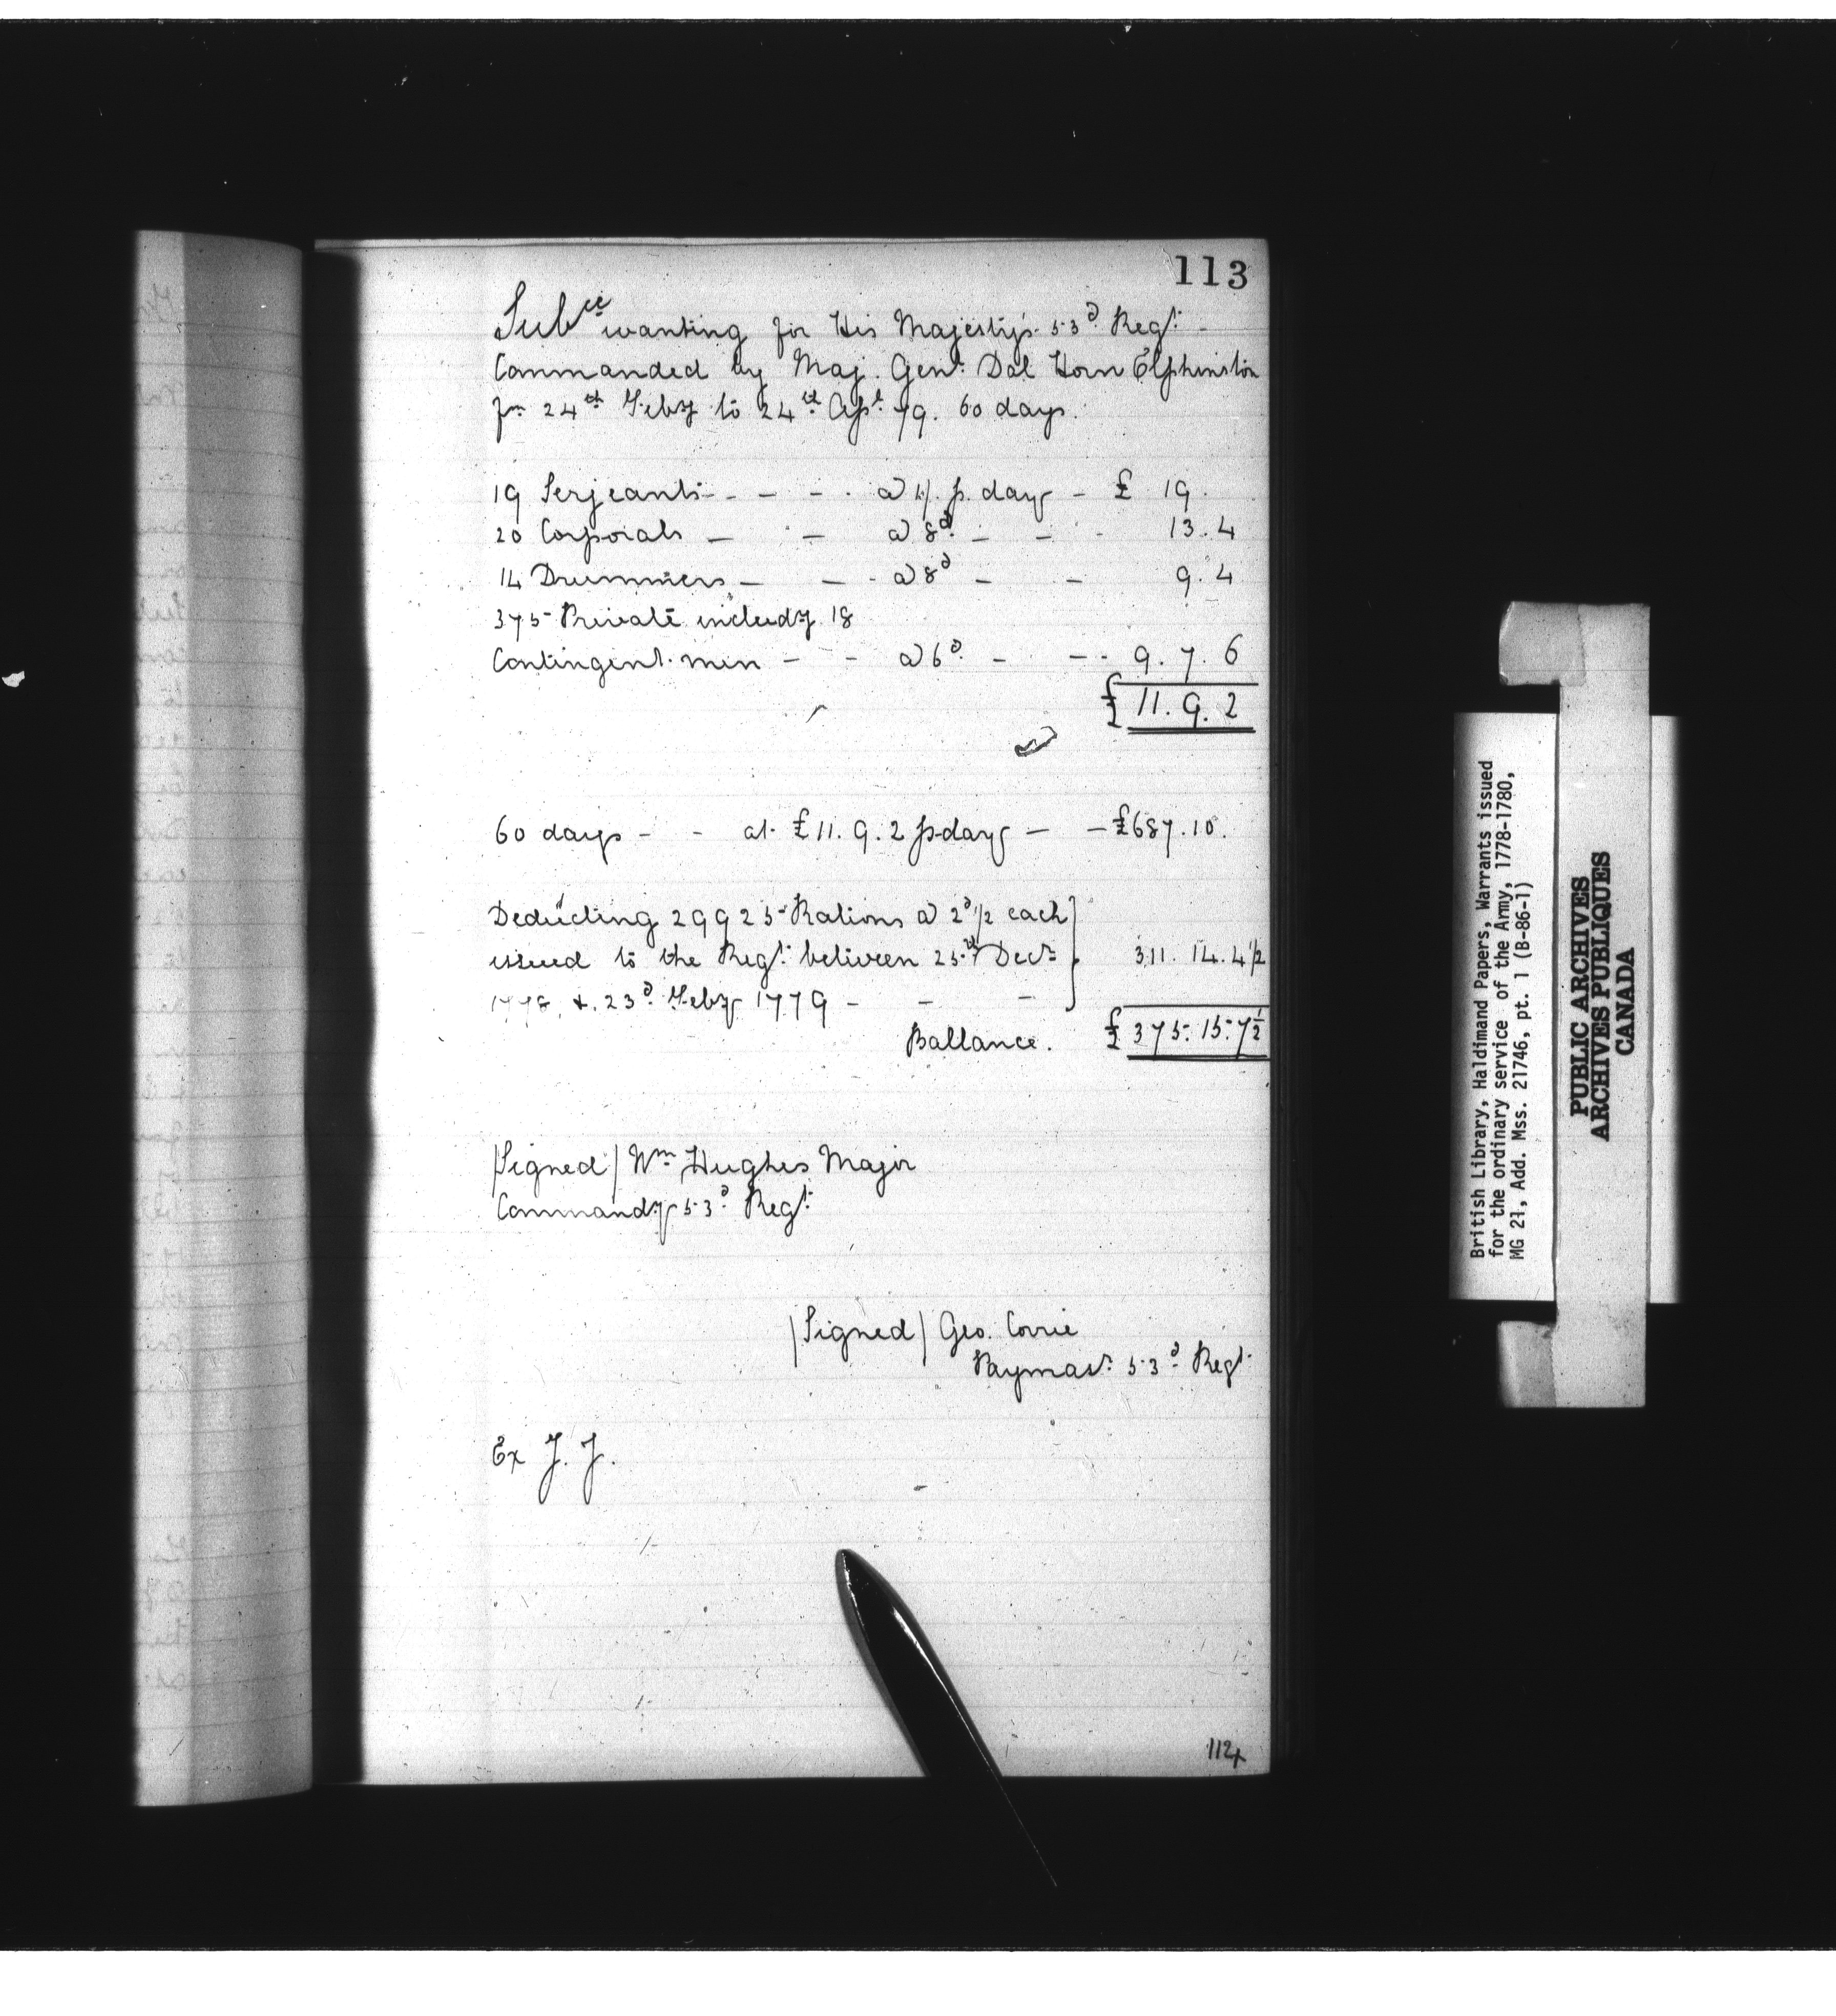 113
Subce wanting for His Majesty's 53d Regt.
Commanded by Maj. Genl. Dal Horn Elphinston
fm 24th Feby to 24th Apl 79. 60 days.
19 Serjeants - - - - @ 1/. p. day - £ 19.
20 Corporals - - @ 8d. - - - 13. 4
14 Drummers - - - @ 8d - - 9. 4
375 Private includg 18
Contingent men - - @ 6d. - - - 9. 7. 6
£ 11. 9. 2
60 days - - at £11. 9. 2 p day - - £687. 10.
Deducting 29925 Rations @ 2d 1/2 each
issued to the Regt. between 25th Decr. 311. 14. 4 1/2
1778, & 23d Feby 1779 - - -
Ballance. £ 375. 15. 7 1/2
/Signed/ Wm Hughes Major
Commandg 53d Regt.
/Signed/ Geo. Corrie
Paymasr. 53d Regt.
Ex J. J.
112
British Library, Haldimand Papers, Warrants issued
for the ordinary service of the Army, 1778-1780,
MG 21, Add. Mss. 21746, pt. 1 (B-86-1)
PUBLIC ARCHIVES
ARCHIVES PUBLIQUES
CANADA